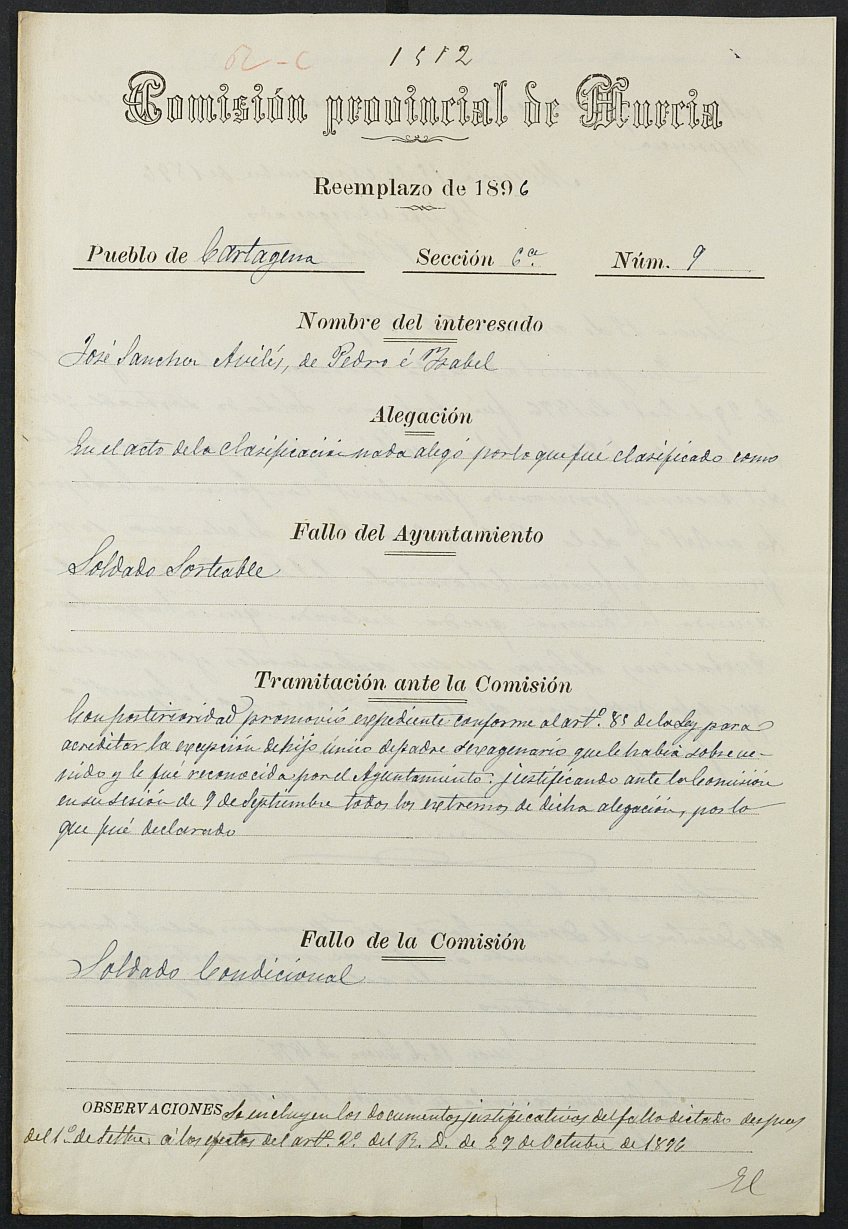 1512
Comisión provincial de Murcia
Reemplazo de 1896
Pueblo de Cartagena Sección 6ª Núm. 9
Nombre del interesado
José Sanchez Avilés, de Pedro é Ysabel
Alegación
En el acto de la clasificación nada alegó por lo que fué clasificado como
Fallo del Ayuntamiento
Soldado Sorteable
Tramitación ante la Comisión
Con posterioridad promovió expediente conforme al artº. 85 de la Ley para
acreditar la excepción de hijo único de padre sexagenario que le habia sobreve-
nido y le fué reconocida por el Ayuntamiento; justificando ante la Comisión
en su sesión de 9 de Septiembre todos los extremos de dicha alegación, por lo
que fué declarado
Fallo de la Comisión
Soldado Condicional
OBSERVACIONES Se incluyen los documentos justificativos del fallo dictado despues
del 1º de Setbre. á los efectos del artº. 2º del R. D. de 29 de Octubre de 1896